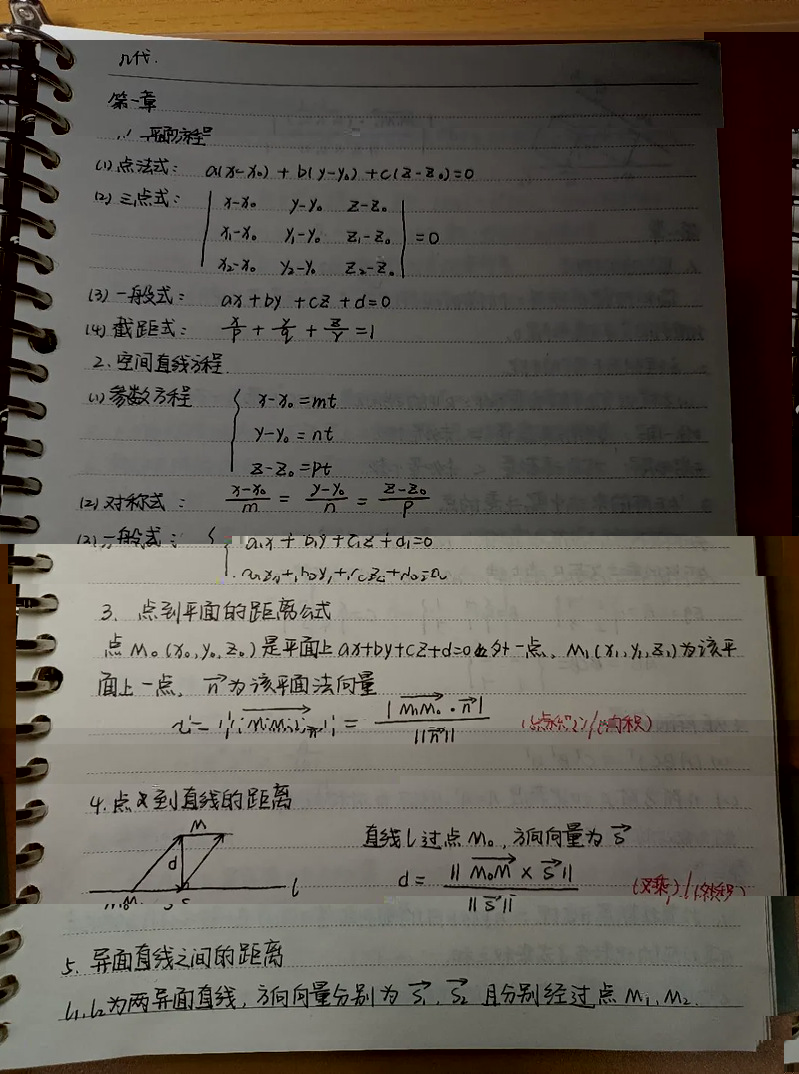 几代.
第一章
1、平面方程
(1) 点法式: a(x-x₀) + b(y-y₀) + c(z-z₀)=0
(2) 三点式: | x-x₀ y-y₀ z-z₀ |
| x₁-x₀ y₁-y₀ z₁-z₀ | = 0
| x₂-x₀ y₂-y₀ z₂-z₀ |
(3) 一般式: ax+by+cz+d=0
(4) 截距式: x/p + y/q + z/r =1
2. 空间直线方程.
(1) 参数方程 { x-x₀=mt
y-y₀=nt
z-z₀=pt
(2) 对称式: (x-x₀)/m = (y-y₀)/n = (z-z₀)/p
(3) 一般式: { a₁x+b₁y+c₁z+d₁=0
3. 点到平面的距离公式
点M₀(x₀,y₀,z₀)是平面上ax+by+cz+d=0外一点, M₁(x₁,y₁,z₁)为该平
面上一点, n⃗为该平面法向量
= |M₁M₀·n⃗| / ||n⃗||
4.点到直线的距离
M
d
l
直线l过点M₀, 方向向量为s⃗
d= ||M₀M × s⃗|| / ||s⃗|| (叉乘)/(外积)
5. 异面直线之间的距离
l₁,l₂为两异面直线, 方向向量分别为s⃗₁, s⃗₂ 且分别经过点M₁,M₂.